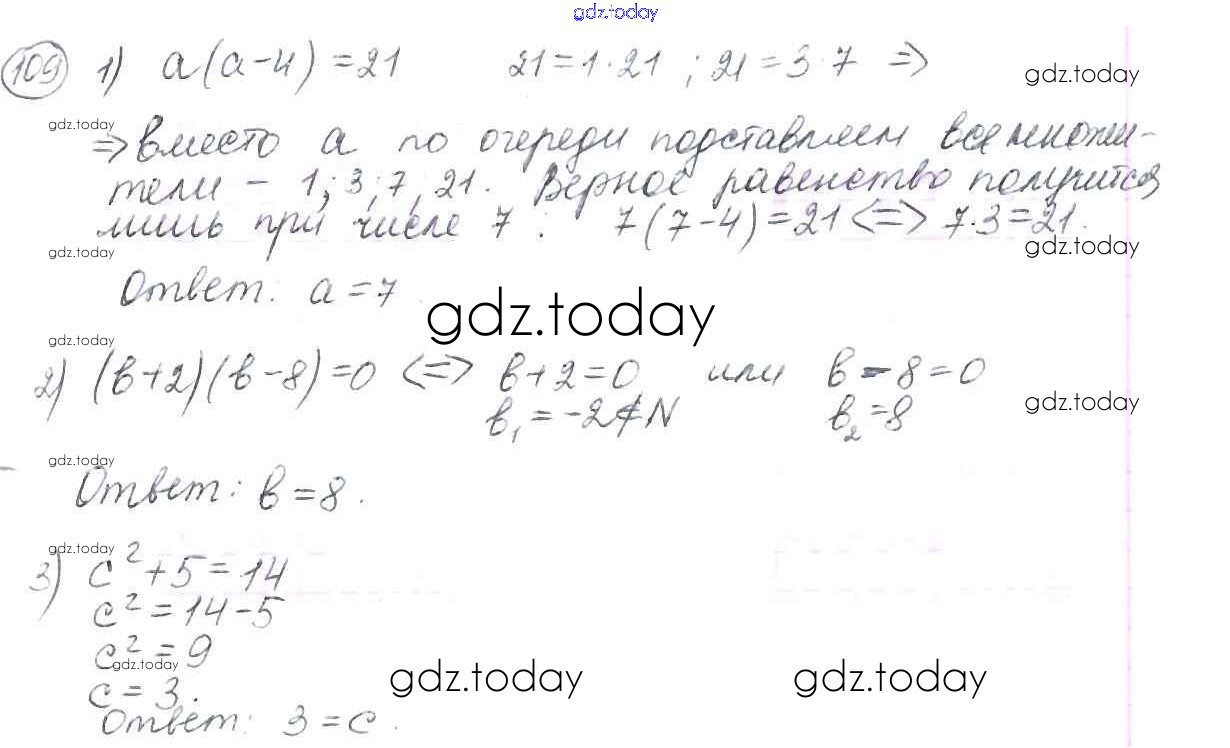 gdz.today
109 1) a(a-4)=21 21=1·21 ; 21=3·7 =>
gdz.today
gdz.today
=> вместо a по очереди подставляем все множи-
тели - 1; 3; 7; 21. Верное равенство получится
лишь при числе 7 : 7(7-4)=21 <=> 7·3=21.
gdz.today
gdz.today
Ответ: a=7.
gdz.today
gdz.today
2) (в+2)(в-8)=0 <=> в+2=0 или в-8=0
в₁=-2∉N в₂=8
gdz.today
gdz.today
Ответ: в=8.
gdz.today
3) c²+5=14
c²=14-5
c²=9
gdz.today
c=3.
gdz.today gdz.today
Ответ: 3=c.